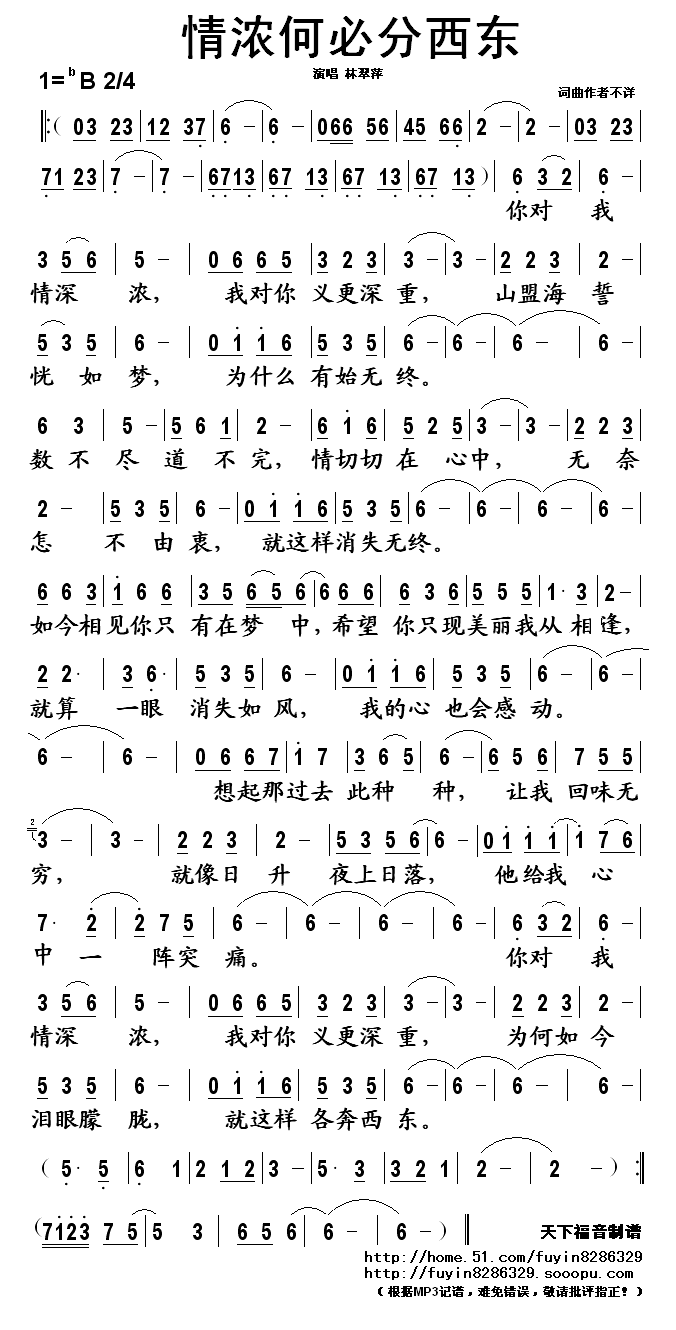 情浓何必分西东
1=bB 2/4
演唱 林翠萍
词曲作者不详
‖:( 03 23 | 12 37 | 6 - | 6 - | 066 56 | 45 66 | 2 - | 2 - | 03 23
71 23 | 7 - | 7 - | 6713 | 67 13 | 67 13 | 67 13 ) | 6 3 2 | 6 -
你对 我
3 5 6 | 5 - | 0 6 6 5 | 3 2 3 | 3 - | 3 - | 2 2 3 | 2 -
情深 浓， 我对你 义更深 重， 山盟海 誓
5 3 5 | 6 - | 0 1 1 6 | 5 3 5 | 6 - | 6 - | 6 - | 6 -
恍 如 梦， 为什么 有始无 终。
6 3 | 5 - | 5 6 1 | 2 - | 6 1 6 | 5 2 5 | 3 - | 3 - | 2 2 3
数 不 尽 道 不 完， 情切切 在 心中， 无 奈
2 - | 5 3 5 | 6 - | 0 1 1 6 | 5 3 5 | 6 - | 6 - | 6 - | 6 -
怎 不 由 衷， 就这样消失无终。
6 6 3 | 1 6 6 | 3 5 6 5 6 | 6 6 6 | 6 3 6 | 5 5 5 | 1· 3 | 2 -
如今相见你只 有在梦 中，希望 你只现美丽我从相逢，
2 2· | 3 6· | 5 3 5 | 6 - | 0 1 1 6 | 5 3 5 | 6 - | 6 -
就算 一眼 消失如 风， 我的心 也会感 动。
6 - | 6 - | 0 6 6 7 | 1 7 | 3 6 5 | 6 - | 6 5 6 | 7 5 5
想起那过去 此种 种， 让我 回味无
2
3 - | 3 - | 2 2 3 | 2 - | 5 3 5 6 | 6 - | 0 1 1 1 | 1 7 6
穷， 就像日 升 夜上日落， 他给我 心
7· 2 | 2 7 5 | 6 - | 6 - | 6 - | 6 - | 6 3 2 | 6 -
中 一 阵突 痛。 你对 我
3 5 6 | 5 - | 0 6 6 5 | 3 2 3 | 3 - | 3 - | 2 2 3 | 2 -
情深 浓， 我对你 义更深 重， 为何如 今
5 3 5 | 6 - | 0 1 1 6 | 5 3 5 | 6 - | 6 - | 6 - | 6 -
泪眼朦 胧， 就这样 各奔西 东。
( 5· 5 | 6 1 | 2 1 2 | 3 - | 5· 3 | 3 2 1 | 2 - | 2 - ) :‖
(7123 7 5 | 5 3 | 6 5 6 | 6 - | 6 - ) ‖
天下福音制谱
http://home.51.com/fuyin8286329
http://fuyin8286329.sooopu.com
（根据MP3记谱，难免错误，敬请批评指正！）